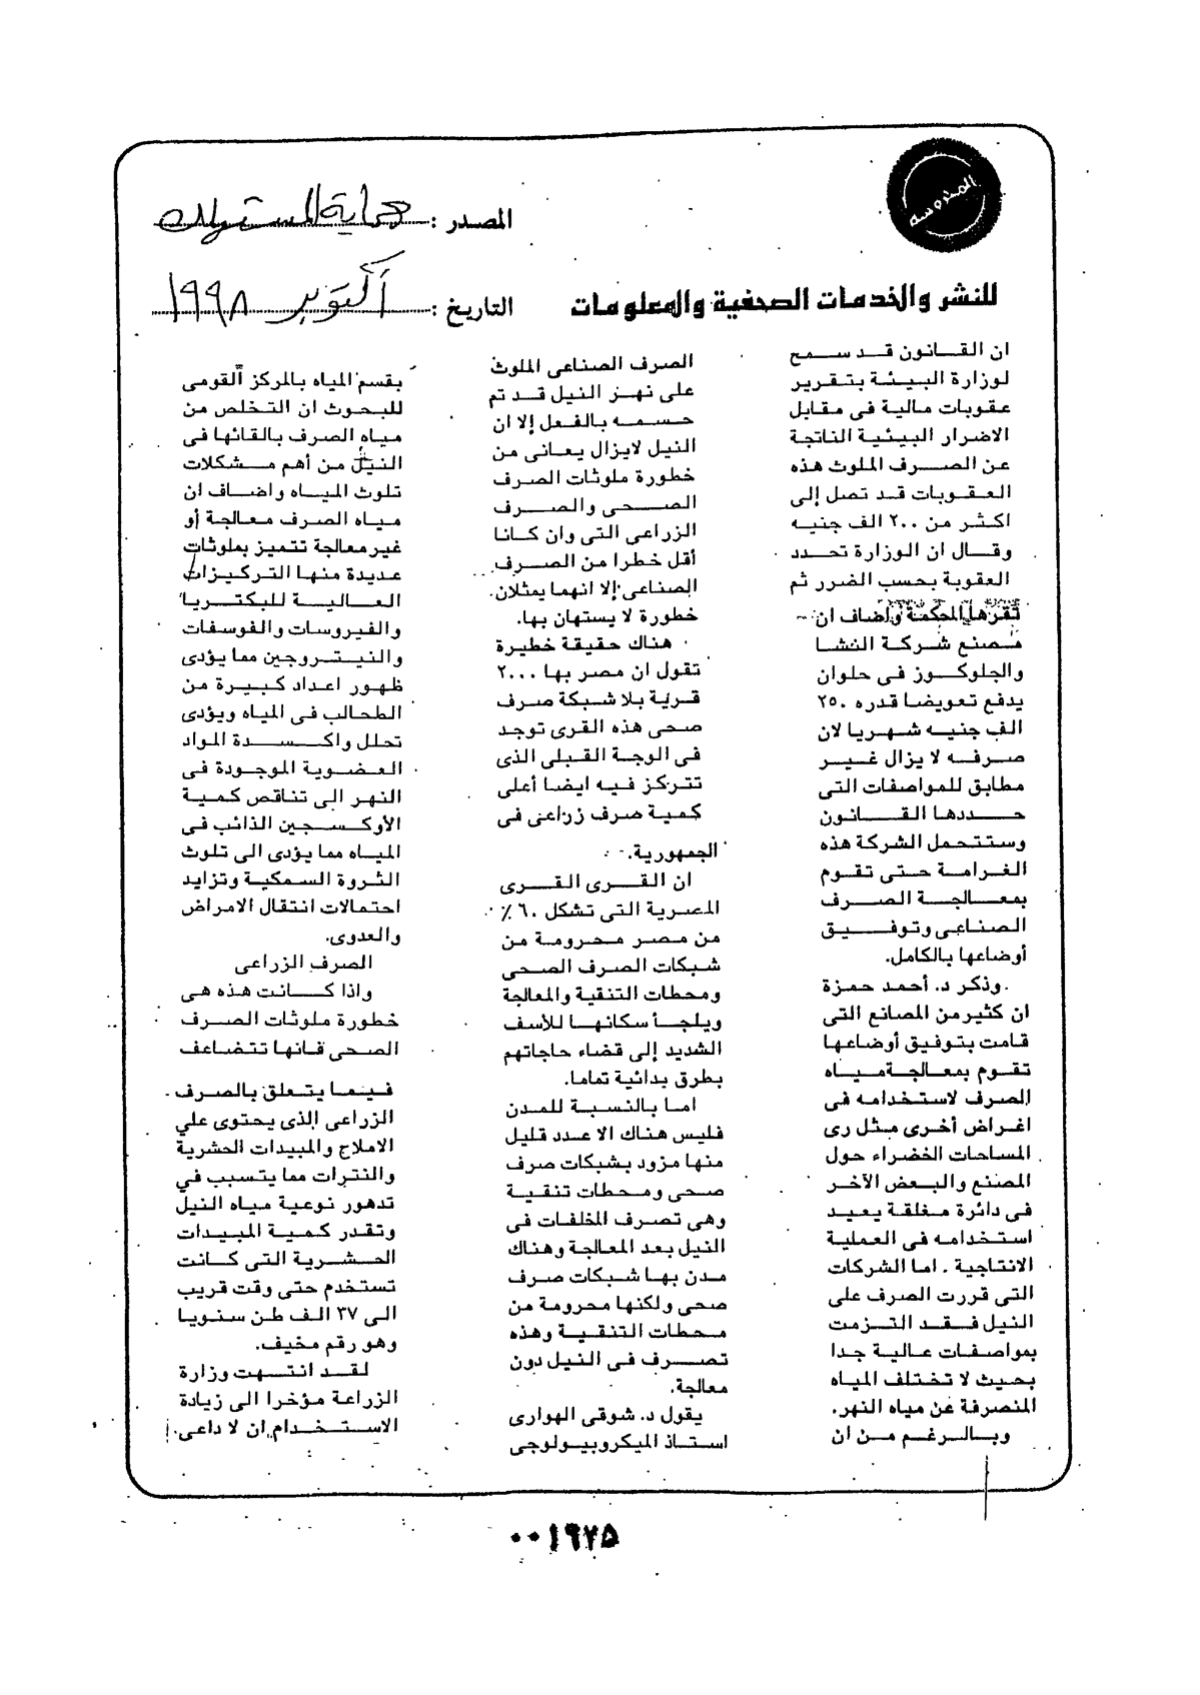 المحروسة
المصدر : حماية المستهلك
للنشر والخدمات الصحفية والمعلومات
التاريخ : أكتوبر ١٩٩٨
ان القانون قد سمح
لوزارة البيئة بتقرير
عقوبات مالية فى مقابل
الاضرار البيئية الناتجة
عن الصرف الملوث هذه
العقوبات قد تصل إلى
اكثر من ٢٠٠ الف جنيه
وقال ان الوزارة تحدد
العقوبة بحسب الضرر ثم
تقرها المحكمة واضاف ان
مصنع شركة النشا
والجلوكوز فى حلوان
يدفع تعويضا قدره ٢٥٠
الف جنيه شهريا لان
صرفه لا يزال غير
مطابق للمواصفات التى
حددها القانون
وستتحمل الشركة هذه
الغرامة حتى تقوم
بمعالجة الصرف
الصناعى وتوفيق
أوضاعها بالكامل.
وذكر د. أحمد حمزة
ان كثير من المصانع التى
قامت بتوفيق أوضاعها
تقوم بمعالجة مياه
الصرف لاستخدامه فى
اغراض أخرى مثل رى
المساحات الخضراء حول
المصنع والبعض الآخر
فى دائرة مغلقة يعيد
استخدامه فى العملية
الانتاجية . اما الشركات
التى قررت الصرف على
النيل فقد التزمت
بمواصفات عالية جدا
بحيث لا تختلف المياه
المنصرفة عن مياه النهر.
وبالرغم من ان
الصرف الصناعى الملوث
على نهر النيل قد تم
حسمه بالفعل إلا ان
النيل لايزال يعانى من
خطورة ملوثات الصرف
الصحى والصرف
الزراعى التى وان كانا
أقل خطرا من الصرف
الصناعى إلا انهما يمثلان
خطورة لا يستهان بها.
هناك حقيقة خطيرة
تقول ان مصر بها ٢٠٠٠
قرية بلا شبكة صرف
صحى هذه القرى توجد
فى الوجة القبلى الذى
تتركز فيه ايضا أعلى
كمية صرف زراعى فى
الجمهورية.
ان القرى القرى
المصرية التى تشكل ٦٠٪
من مصر محرومة من
شبكات الصرف الصحى
ومحطات التنقية والمعالجة
ويلجأ سكانها للأسف
الشديد إلى قضاء حاجاتهم
بطرق بدائية تماما.
اما بالنسبة للمدن
فليس هناك الا عدد قليل
منها مزود بشبكات صرف
صحى ومحطات تنقية
وهى تصرف المخلفات فى
النيل بعد المعالجة وهناك
مدن بها شبكات صرف
صحى ولكنها محرومة من
محطات التنقية وهذه
تصرف فى النيل دون
معالجة.
يقول د. شوقى الهوارى
استاذ الميكروبيولوجى
بقسم المياه بالمركز القومى
للبحوث ان التخلص من
مياه الصرف بالقائها فى
النيل من أهم مشكلات
تلوث المياه واضاف ان
مياه الصرف معالجة أو
غير معالجة تتميز بملوثات
عديدة منها التركيزات
العالية للبكتريا
والفيروسات والفوسفات
والنيتروجين مما يؤدى
ظهور اعداد كبيرة من
الطحالب فى المياه ويؤدى
تحلل واكسدة المواد
العضوية الموجودة فى
النهر الى تناقص كمية
الأوكسجين الذائب فى
المياه مما يؤدى الى تلوث
الثروة السمكية وتزايد
احتمالات انتقال الامراض
والعدوى.
الصرف الزراعى
واذا كانت هذه هى
خطورة ملوثات الصرف
الصحى فانها تتضاعف
فيما يتعلق بالصرف
الزراعى الذى يحتوى علي
الاملاح والمبيدات الحشرية
والنترات مما يتسبب في
تدهور نوعية مياه النيل
وتقدر كمية المبيدات
الحشرية التى كانت
تستخدم حتى وقت قريب
الى ٣٧ الف طن سنويا
وهو رقم مخيف.
لقد انتهت وزارة
الزراعة مؤخرا الى زيادة
الاستخدام ان لا داعى.
٠٠١٩٢٥